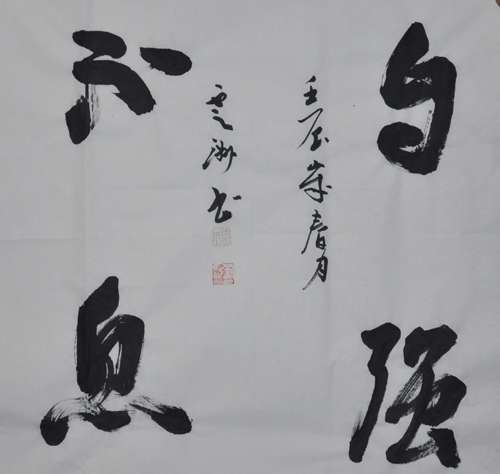 自强
不息
壬辰岁春月
云洲书